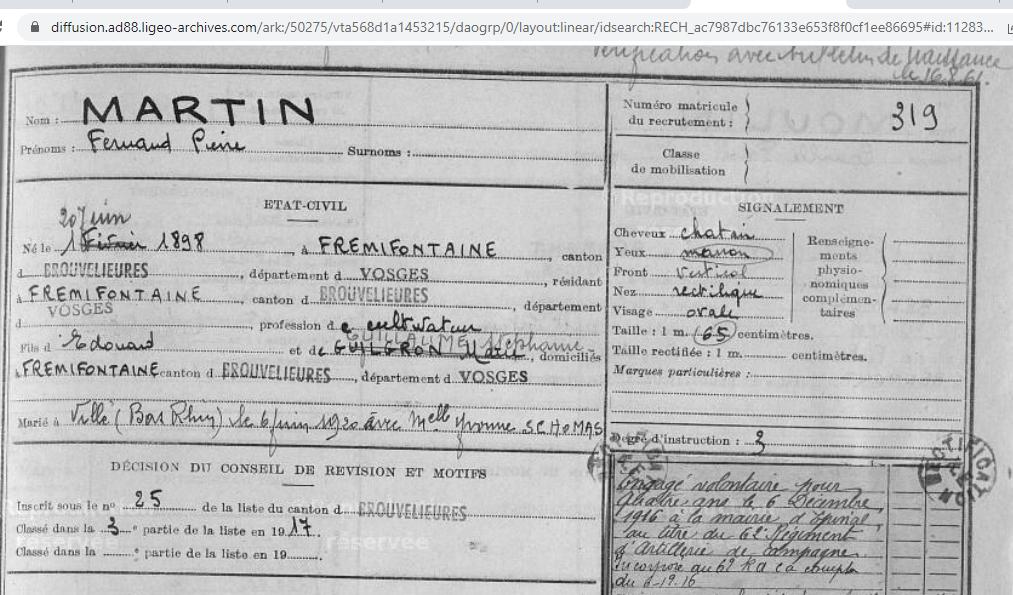 diffusion.ad88.ligeo-archives.com/ark:/50275/vta568d1a1453215/daogrp/0/layout:linear/idsearch:RECH_ac7987dbc76133e653f8f0cf1ee86695#id:11283...
Vérification avec bulletin de naissance
le 16.8.61.
Nom : MARTIN
Prénoms : Fernand Pierre Surnoms :
Numéro matricule du recrutement : 319
Classe de mobilisation
ETAT-CIVIL
20 juin
Né le 1 Février 1898, à FREMIFONTAINE, canton
d BROUVELIEURES, département d VOSGES, résidant
à FREMIFONTAINE, canton d BROUVELIEURES, département
d VOSGES, profession de cultivateur
GUILLAUME Stéphanie
Fils d Edouard et de GUILGRON Marie, domiciliés
à FREMIFONTAINE canton d BROUVELIEURES, département d VOSGES
Marié à Villé (Bas Rhin) le 6 juin 1920 avec Melle Yvonne SCHOMAS
SIGNALEMENT
Cheveux chatain
Yeux marron
Front vertical
Nez rectiligne
Visage ovale
Renseigne-
ments
physio-
nomiques
complémen-
taires
Taille : 1 m. 65 centimètres.
Taille rectifiée : 1 m. centimètres.
Marques particulières :
Degré d'instruction : 3
DÉCISION DU CONSEIL DE REVISION ET MOTIFS
Inscrit sous le no 25 de la liste du canton d BROUVELIEURES
Classé dans la 3e partie de la liste en 1917.
Classé dans la e partie de la liste en 19
Engagé volontaire pour
quatre ans le 6 Décembre
1916 à la mairie d'Epinal,
au titre du 62e Régiment
d'Artillerie de campagne.
Incorporé au 62e R a c à compter
du
Reproduction
réservée
réservée